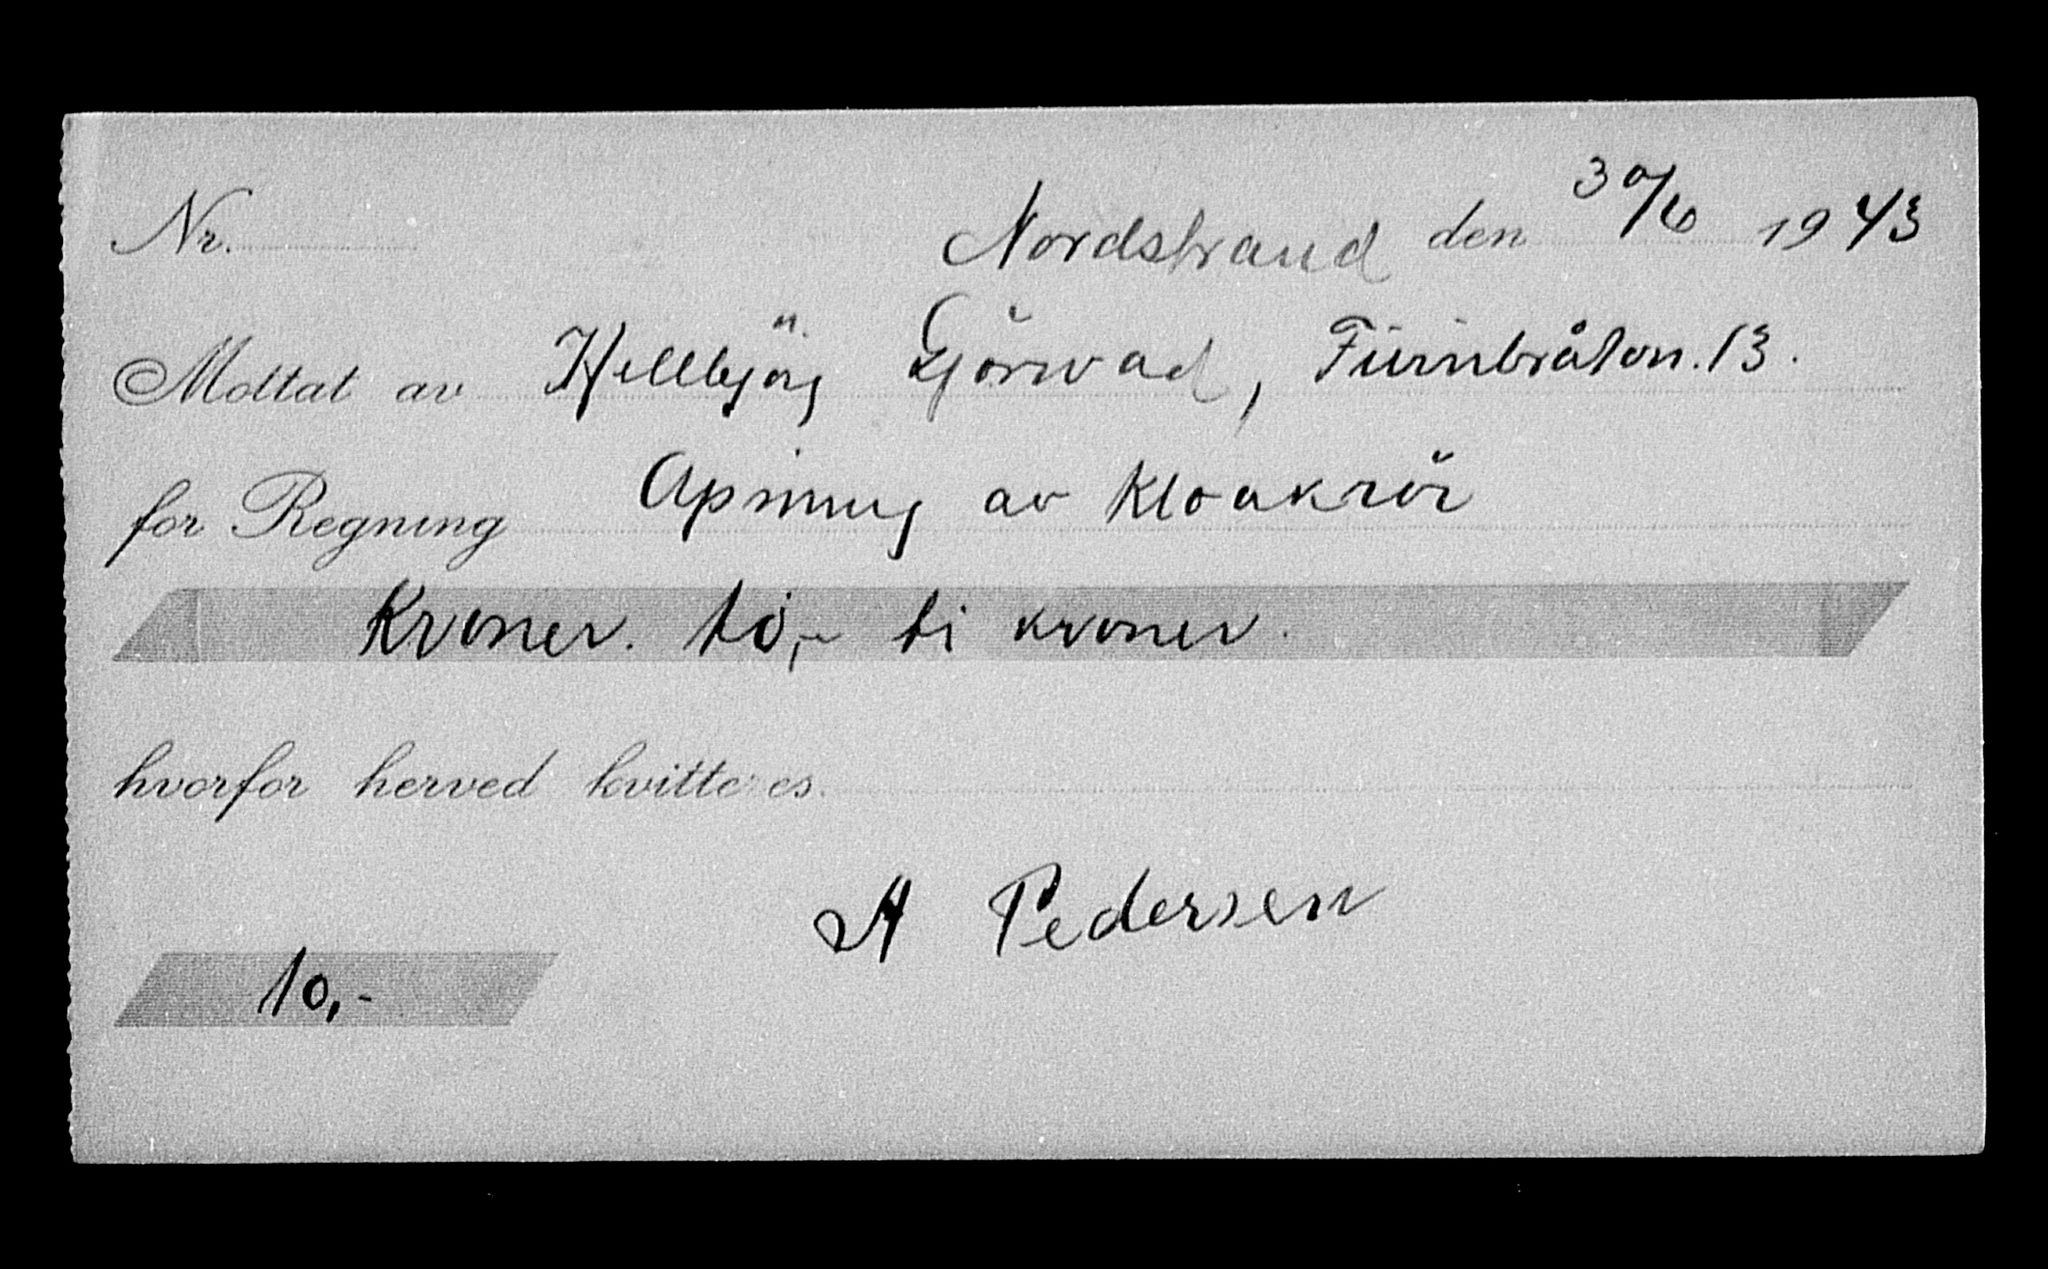 Nr. Nordstrand den 30/6 1943
Mottat av Hellbjörg Görvad, Furubråtvn. 13.
for Regning Apning av Kloakrör
Kroner. 10,- ti kroner.
hvorfor herved kvitteres
A Pedersen
10,-